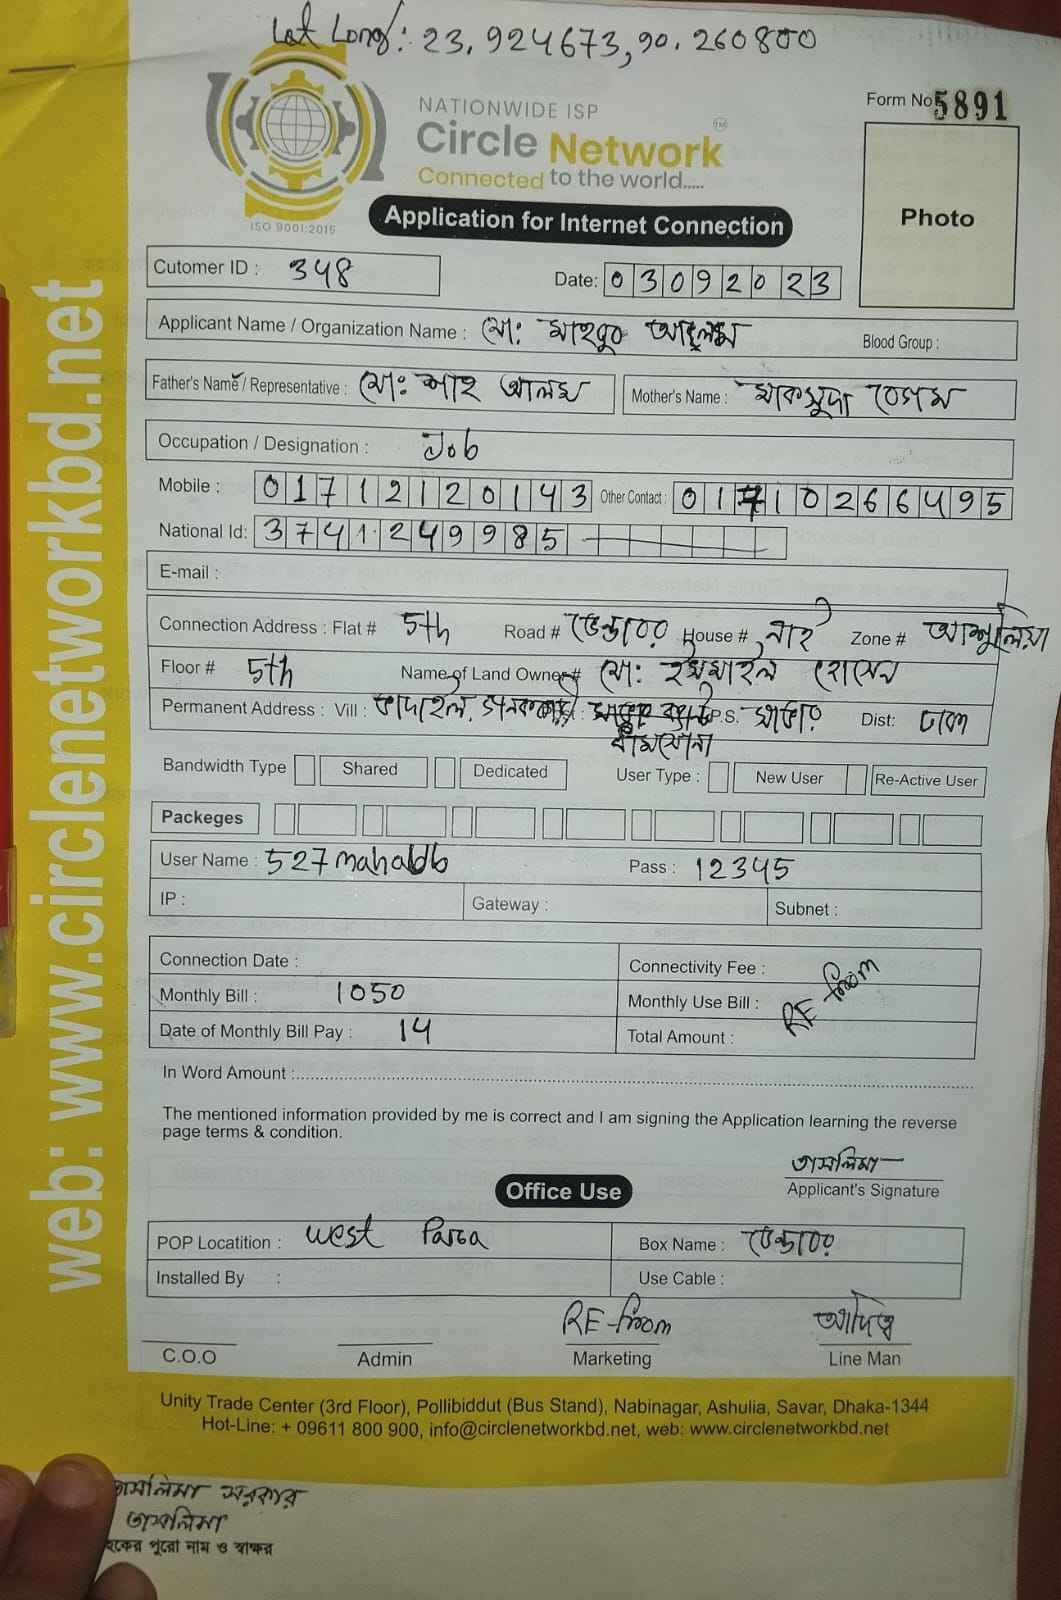 Lat Long: 23.924673,90.260800
NATIONWIDE ISP
Form No 5891
Circle Network TM
Connected to the world.....
ISO 9001:2015
Application for Internet Connection
Photo
Cutomer ID : 348 Date: 03092023
Applicant Name / Organization Name : মো: Blood Group :
Father's Name / Representative : মো: শাহ আলম Mother's Name : মাকসুদা বেগম
Occupation / Designation : Job
Mobile : 01712120143 Other Contact : 01710266495
National Id: 3741249985
E-mail :
Connection Address : Flat # 5th Road # House # নাই Zone # আশুলিয়া
Floor # 5th Name of Land Owner# মো: হোসেন
Permanent Address : Vill : P.S. সাভার Dist: ঢাকা
Bandwidth Type Shared Dedicated User Type : New User Re-Active User
Packeges
User Name : Pass : 12345
IP : Gateway : Subnet :
Connection Date : Connectivity Fee :
Monthly Bill : 1050 Monthly Use Bill : RE from
Date of Monthly Bill Pay : 14 Total Amount :
In Word Amount :
The mentioned information provided by me is correct and I am signing the Application learning the reverse
page terms & condition.
তাসলিমা
Applicant's Signature
Office Use
POP Locatition : West Para Box Name :
Installed By : Use Cable :
RE-from
C.O.O Admin Marketing Line Man
Unity Trade Center (3rd Floor), Pollibiddut (Bus Stand), Nabinagar, Ashulia, Savar, Dhaka-1344
Hot-Line: + 09611 800 900, info@circlenetworkbd.net, web: www.circlenetworkbd.net
তাসলিমা সরকার
তাসলিমা
পুরো নাম ও স্বাক্ষর
web: www.circlenetworkbd.net